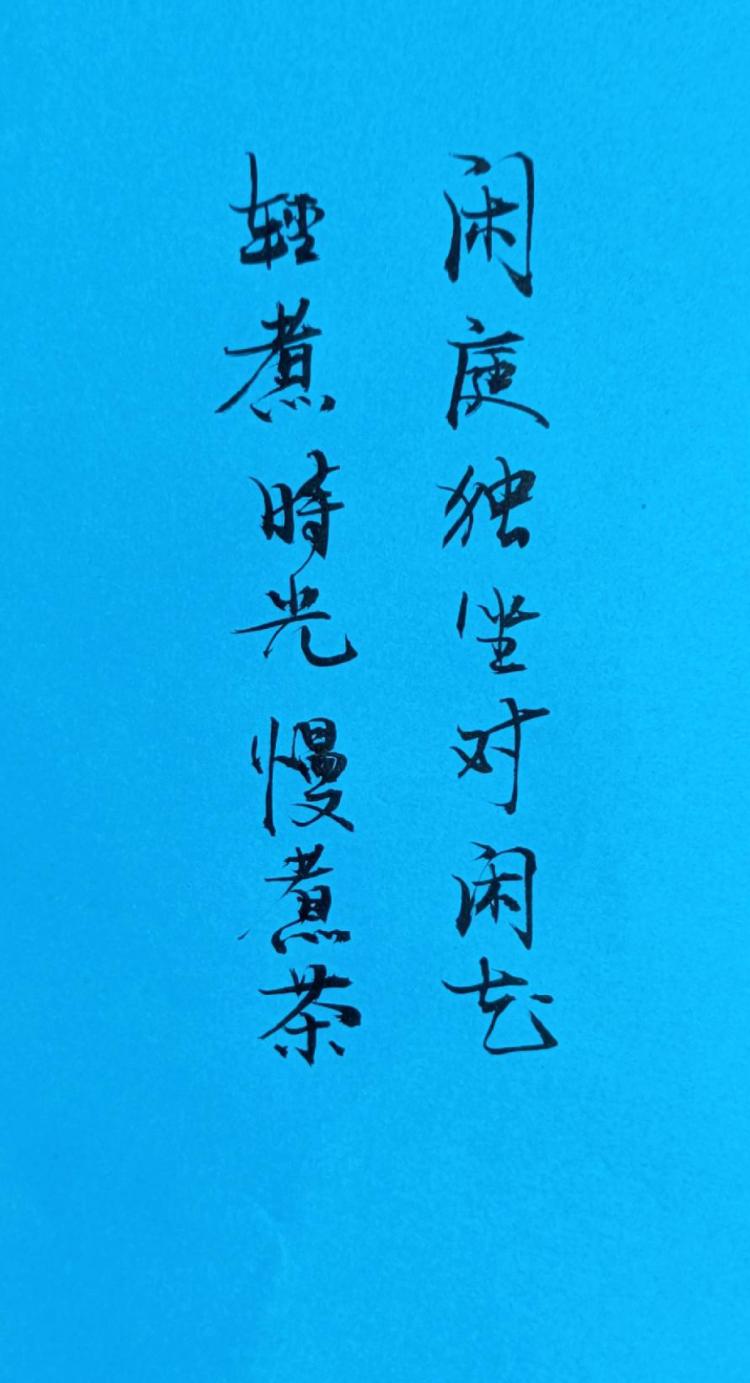 闲庭独坐对闲花
轻煮時光慢煮茶